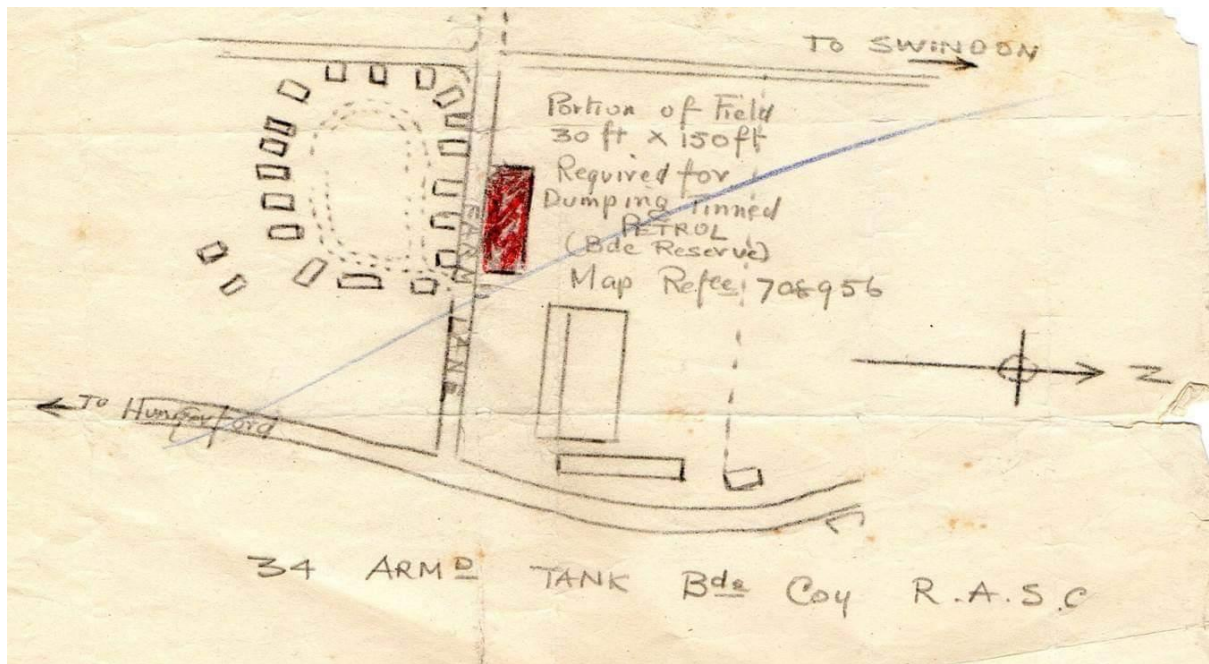 TO SWINDON
Portion of Field
30 ft x 150 ft
Required for
Dumping Tinned
PETROL
(Bde Reserve)
Map Refce 708956
FARM LANE
N
TO Hungerford
34 ARMD TANK Bde Coy R.A.S.C